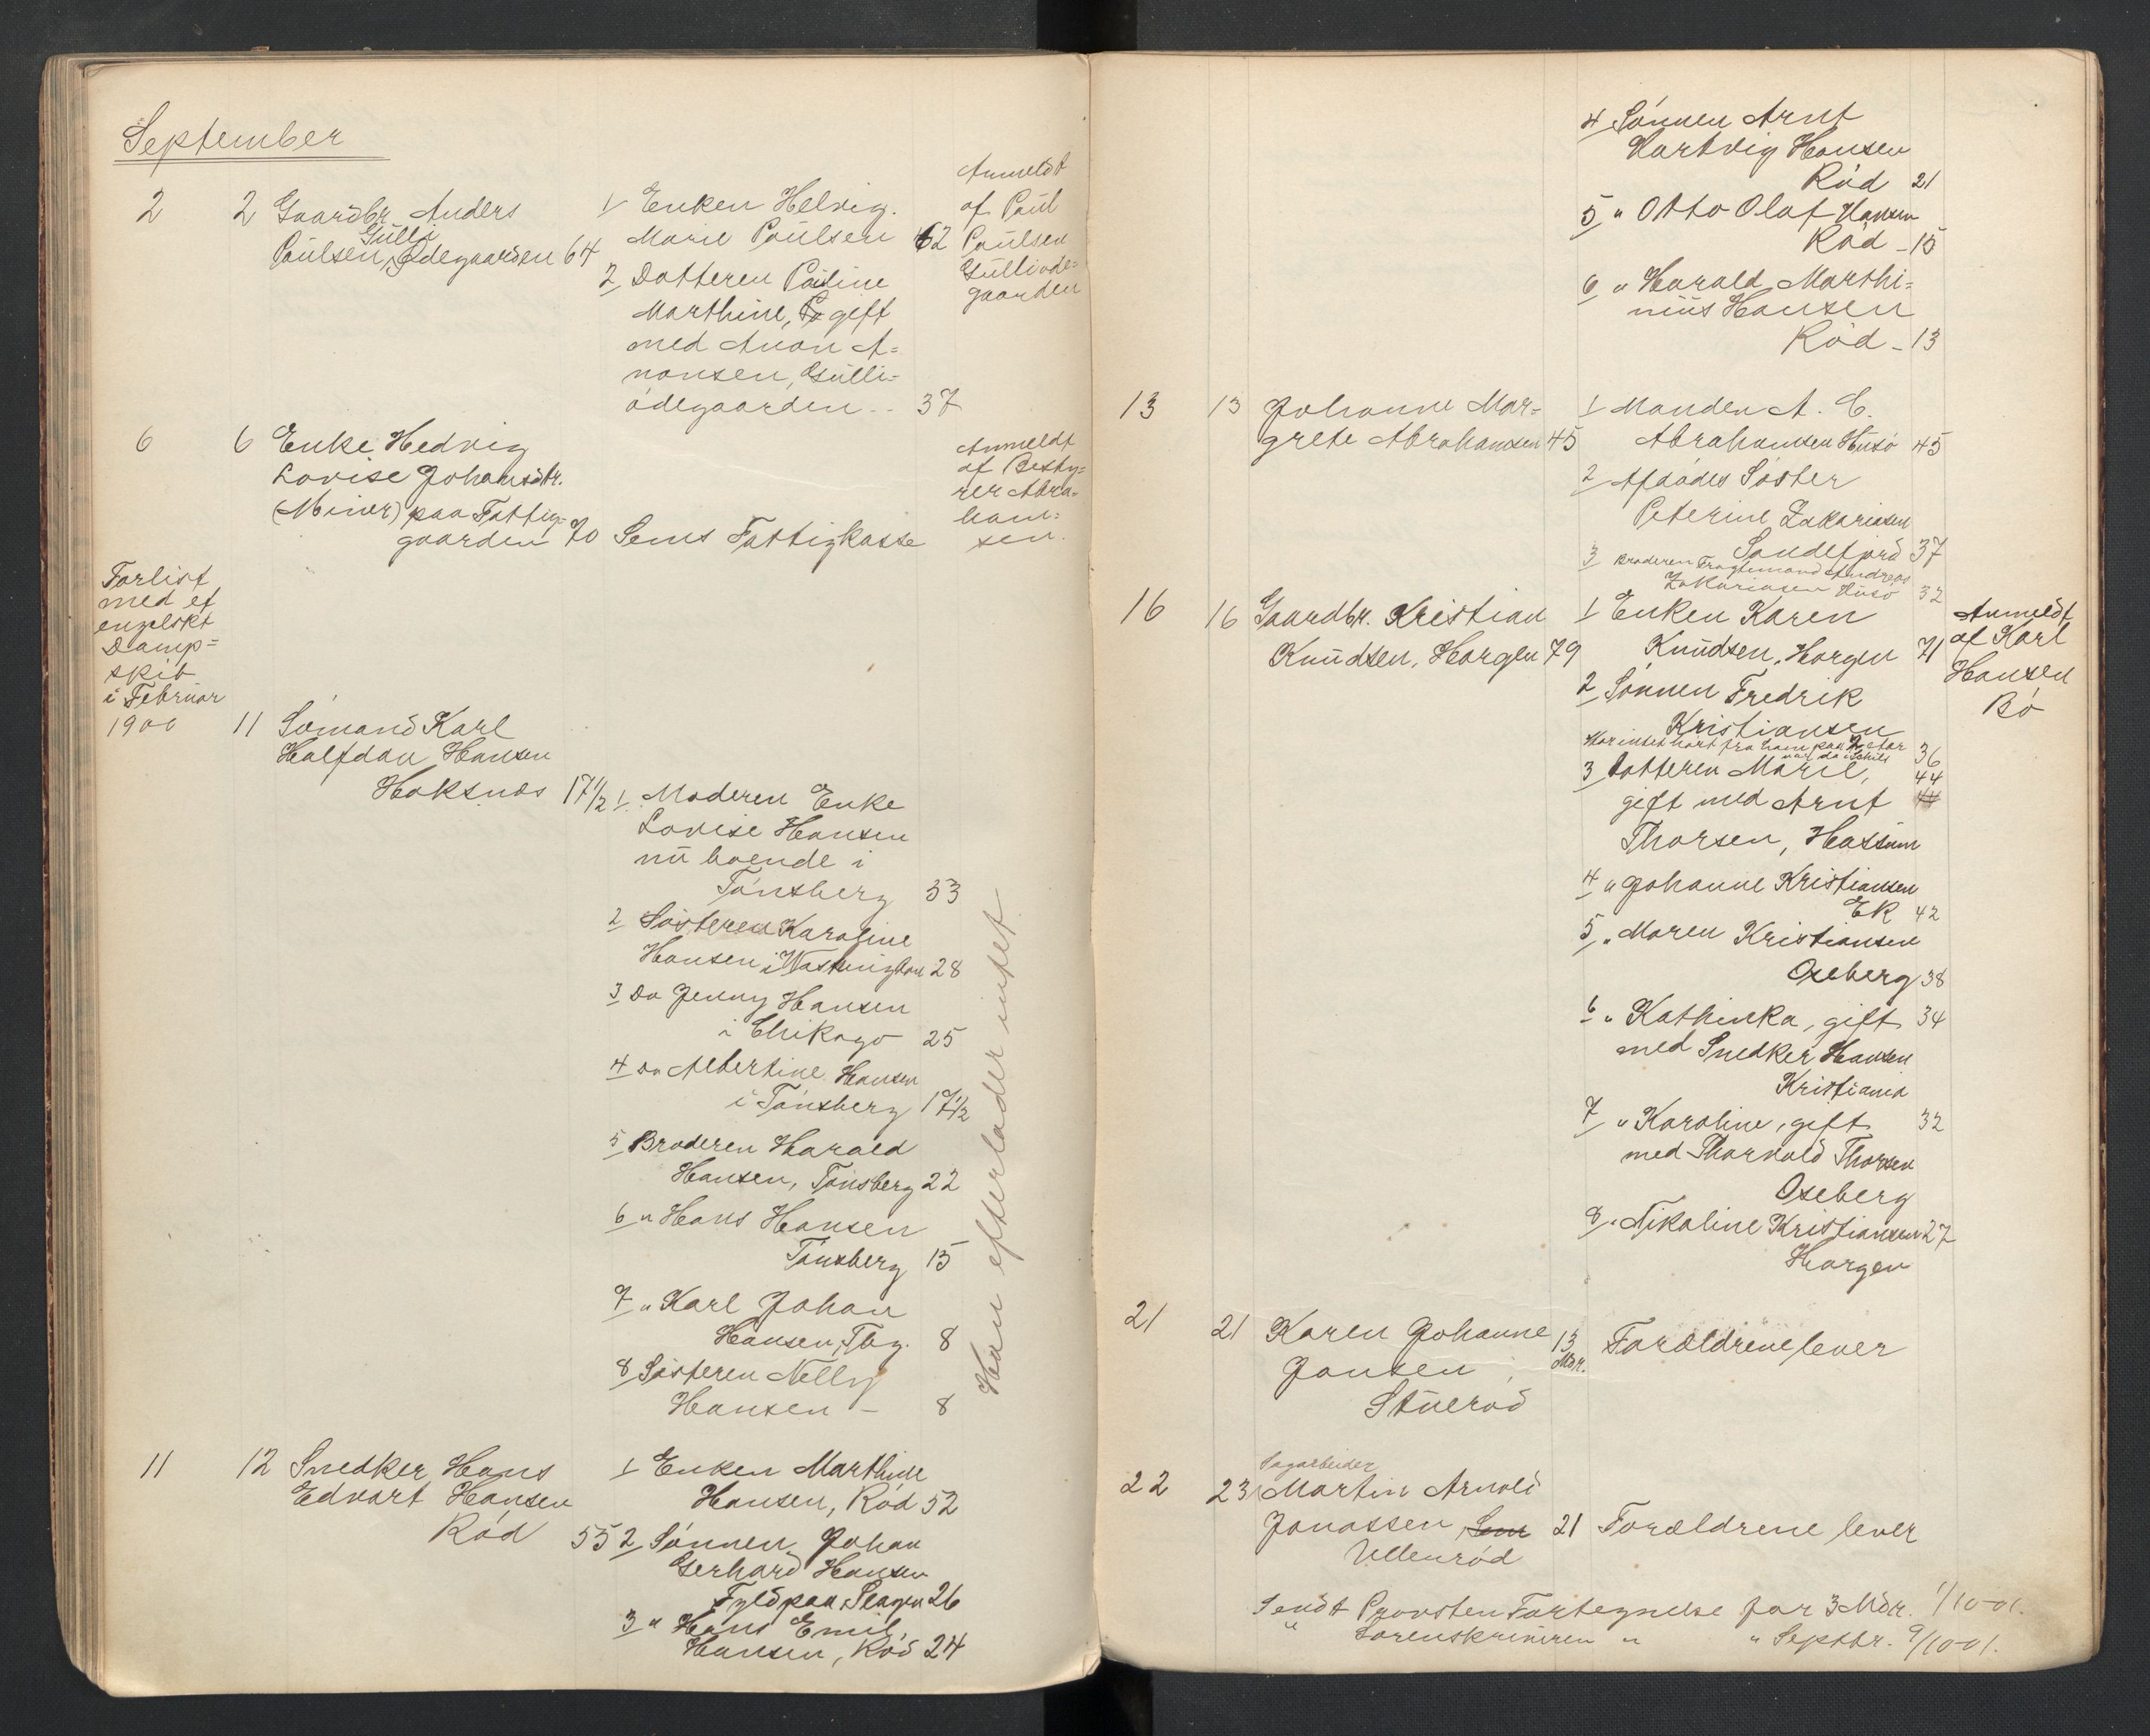 September
2 2 Gaardbr. Anders
Gulli
Paulsen, Ødegaarden 64
1 Enken Helvig.
Marie Paulsen 62
2 Datteren Pauline
Marthine, gift
med Anon A=
nonsen, Gulli=
ødegaarden .. 37
Anmeldt
af Paul
Paulsen
Gulliøde=
gaarden
6 6 Enke Hedvig
Lovise Johansdtr.
(Miner) paa Fattig=
gaarden 70 Sems Fattigkasse
Anmeldt
af Besty=
rer Abra=
ham=
sen.
Forlist
med et
engelskt
Damp=
skib
i Februar
1900 11 Sømand Karl
Halfdan Hansen
Haksnæs 17 1/2
1 Moderen Enke
Lovise Hansen
nu boende i
Tønsberg 53
2 Søsteren Karoline
Hansen i Washington 28
3 Do Jenny Hansen
i Chikago 25
4 Do Albertine Hansen
i Tønsberg 17 1/2
5 Broderen Harald
Hansen, Tønsberg 22
6 " Hans Hansen
Tønsberg 15
7 " Karl Johan
Hansen, Tbg. 8
8 Søsteren Nelly
Hansen - 8
Han efterlader intet
11 12 Snedker Hans
Edvart Hansen
Rød 55
1 Enken Marthine
Hansen, Rød 52
2 Sønnen Johan
Gerhard Hansen
Fyld paa Slagen 26
3 " Hans Emil
Hansen, Rød 24
4 Sønnen Arnt
Hartvig Hansen
Rød 21
5 " Otto Olaf Hansen
Rød - 15
6 " Harald Marthi=
nius Hansen
Rød - 13
13 13 Johanne Mar=
grete Abrahamsen 45
1 Manden A. C.
Abrahamsen Husø 45
2 Afdødes Søster
Peterine Zakariasen
Sandefjord 37
3 Broderen Fragtemand Andreas
Zakariasen Husø 32
16 16 Gaardbr. Kristian
Knudsen, Horgen 79
1 Enken Karen
Knudsen, Horgen 71
2 Sønnen Fredrik
Kristiansen
Har intet hørt fra ham paa 2 Aar
var da i Chili 36
3 Datteren Marie, 44
gift med Arnt 44
Thorsen, Hassum
4 " Johanne Kristiansen
Ek 42
5 " Maren Kristiansen
Oseberg 38
6 " Kathinka, gift 34
med Snedker Hansen
Kristiania
7 " Karoline, gift 32
med Thorvald Thorsen
Oseberg
8 " Nikoline Kristiansen 27
Horgen
Anmeldt
af Karl
Hansen
Bø
21 21 Karen Johanne
Jansen 13 Mdr. Forældrene lever
Stuerød
Sagarbeider
22 23 Martin Arnold
Jonassen, Sem 21 Forældrene lever
Ullenrød
Sendt Provsten Fortegnelse for 3 Mdr. 1/10-01.
" Sorenskriveren " " Septbr. 9/10-01.